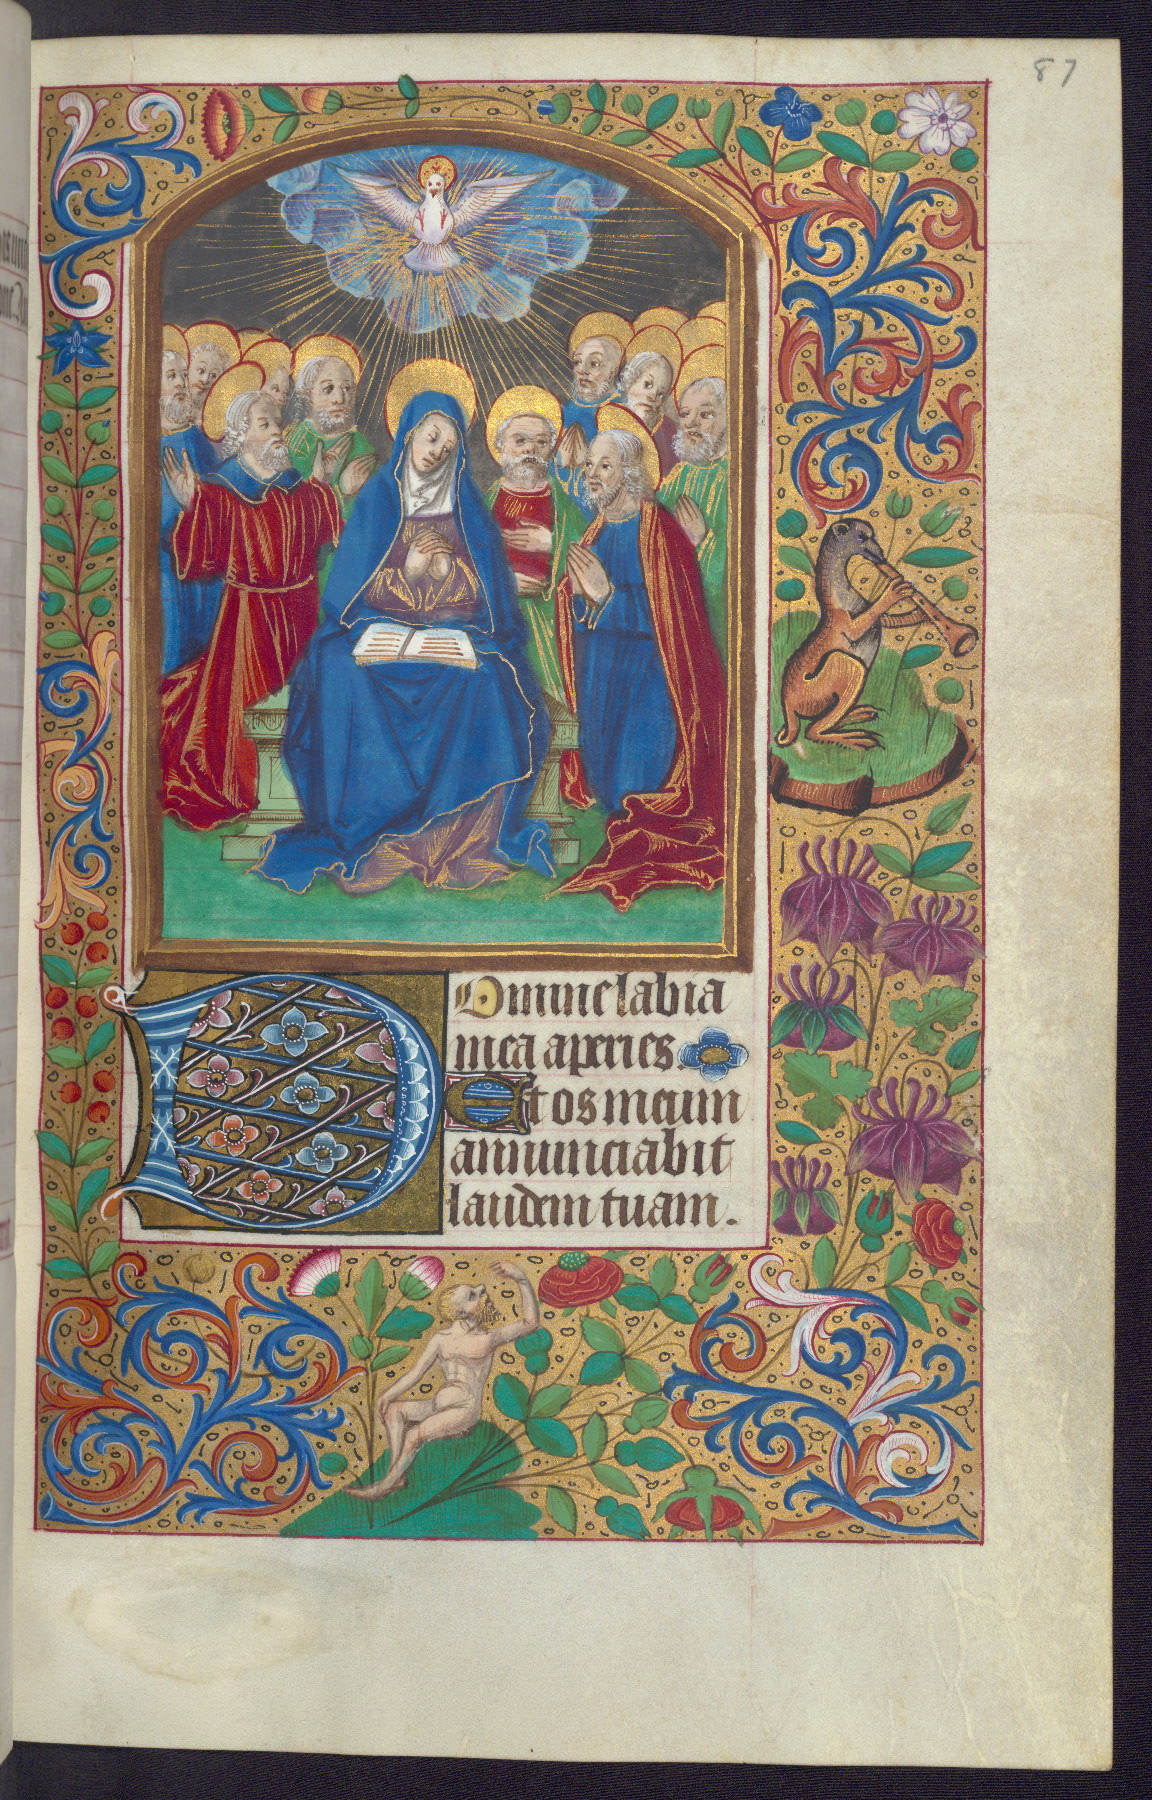 87
Domine labia
mea aperies.
Et os meum
annunciabit
laudem tuam.